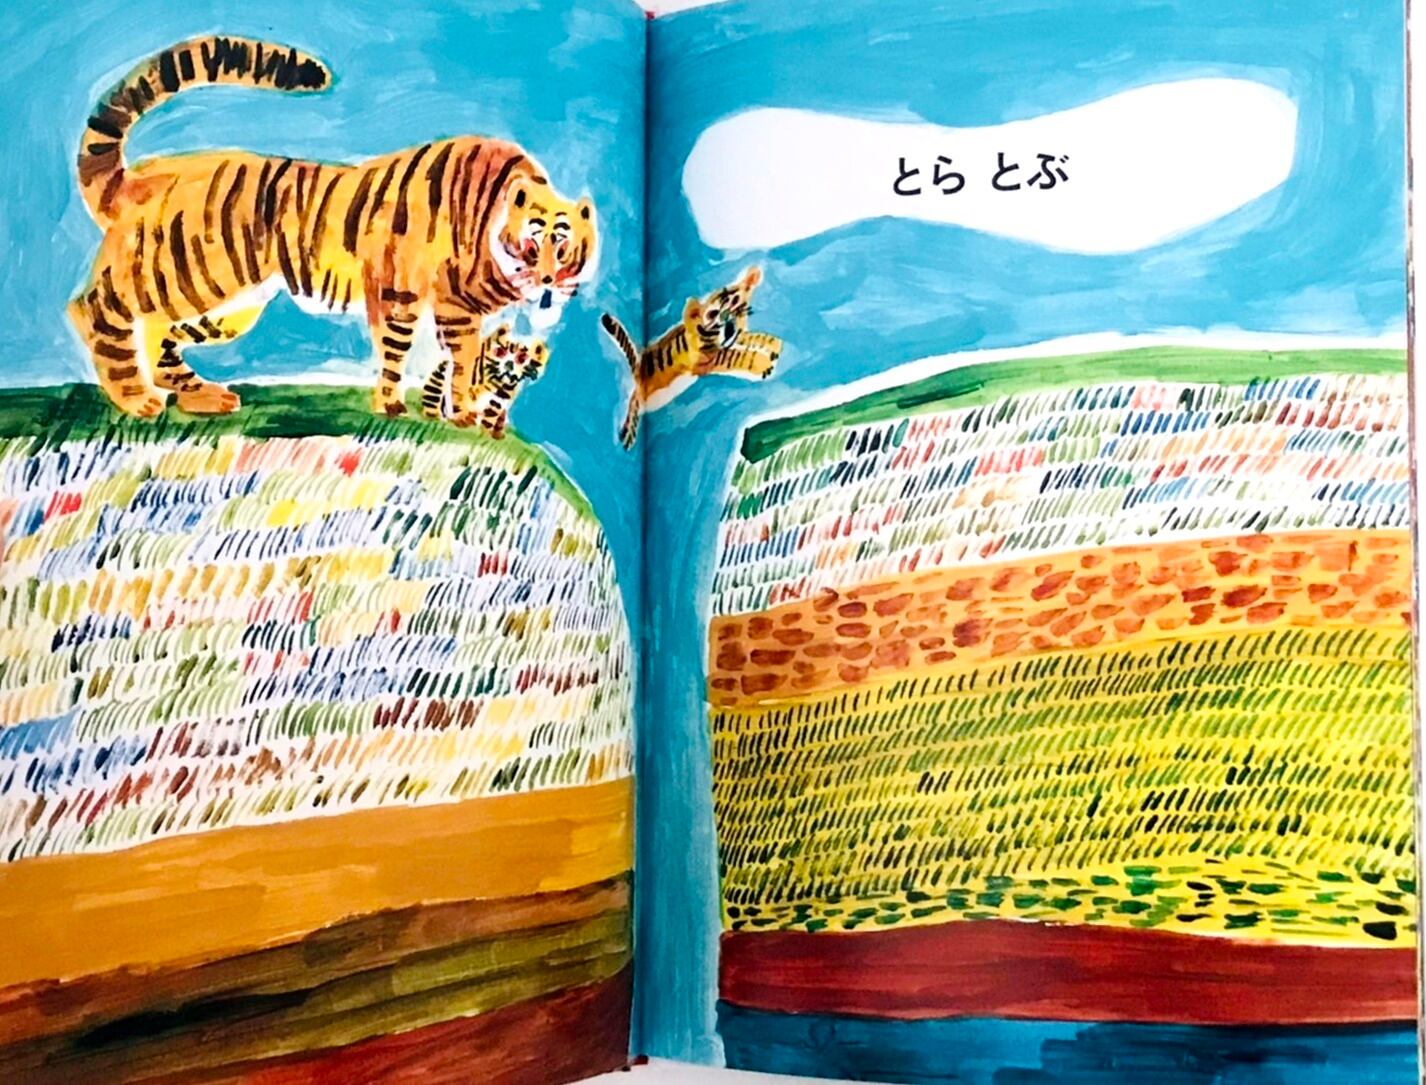 とら とぶ